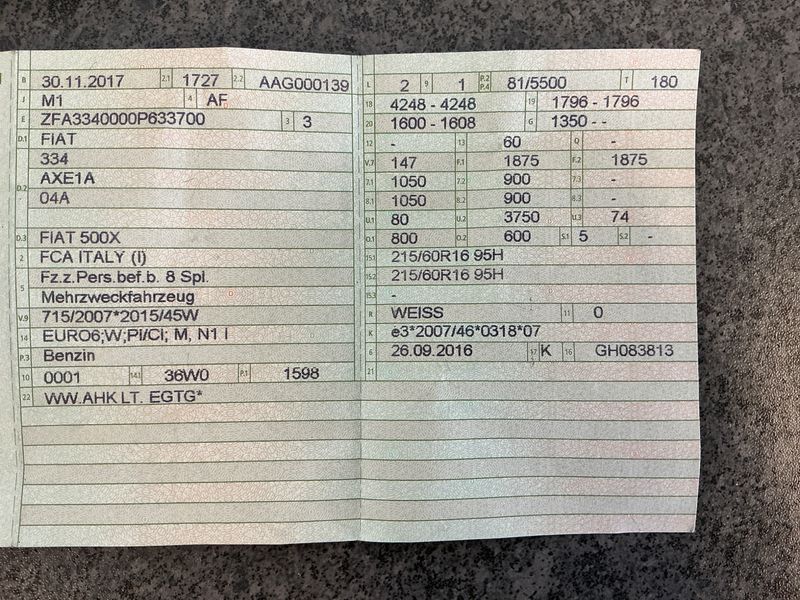 B 30.11.2017 2.1 1727 2.2 AAG000139
J M1 4 AF
E ZFA3340000P633700 3 3
D.1 FIAT
334
D.2 AXE1A
04A
D.3 FIAT 500X
2 FCA ITALY (I)
5 Fz.z.Pers.bef.b. 8 Spl.
Mehrzweckfahrzeug
V.9 715/2007*2015/45W
14 EURO6;W;PI/CI; M, N1 I
P.3 Benzin
10 0001 14.1 36W0 P.1 1598
22 WW.AHK LT. EGTG*
L 2 9 1 P.2 P.4 81/5500 T 180
18 4248 - 4248 19 1796 - 1796
20 1600 - 1608 G 1350 - -
12 - 13 60 Q -
V.7 147 F.1 1875 F.2 1875
7.1 1050 7.2 900 7.3 -
8.1 1050 8.2 900 8.3 -
U.1 80 U.2 3750 U.3 74
O.1 800 O.2 600 S.1 5 S.2 -
15.1 215/60R16 95H
15.2 215/60R16 95H
15.3 -
R WEISS 11 0
K e3*2007/46*0318*07
6 26.09.2016 17 K 16 GH083813
21